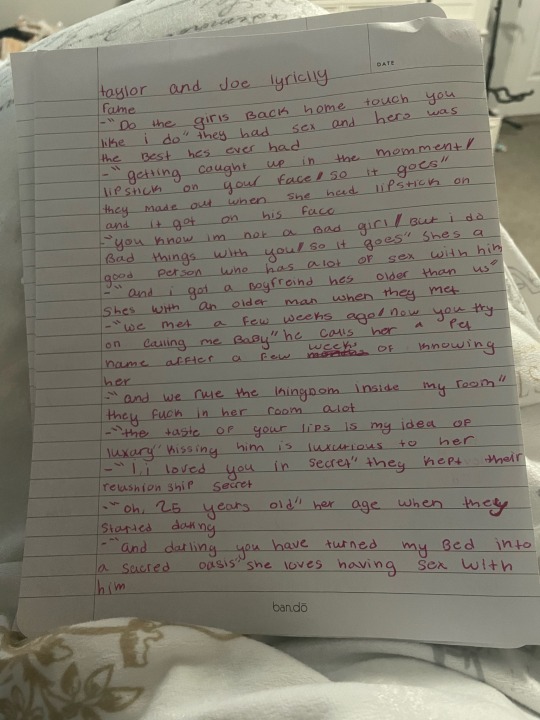 DATE
taylor and Joe lyriclly
fame
-"Do the girls Back home touch you
like i do" they had sex and hers was
the Best hes ever had
-"getting caught up in the momment/
lipstick on your face/so it goes"
they made out when she had lipstick on
and it got on his face
-"you know im not a Bad girl/But i do
Bad things with you/so it goes" shes a
good person who has alot of sex with him
-"and i got a boyfreind hes older than us"
shes with an older man when they met
-"we met a few weeks ago/now you try
on calling me Baby" he calls her a pet
name affter a few weeks of knowing
her
-"and we rule the kingdom inside my room"
they fuck in her room alot
-"the taste of your lips is my idea of
luxary" kissing him is luxurious to her
-"I, i loved you in secret" they kept their
relaushion ship secret
-"oh, 25 years old" her age when they
started dating
-"and darling you have turned my Bed into
a sacred oasis" she loves having sex with
him
ban.dō